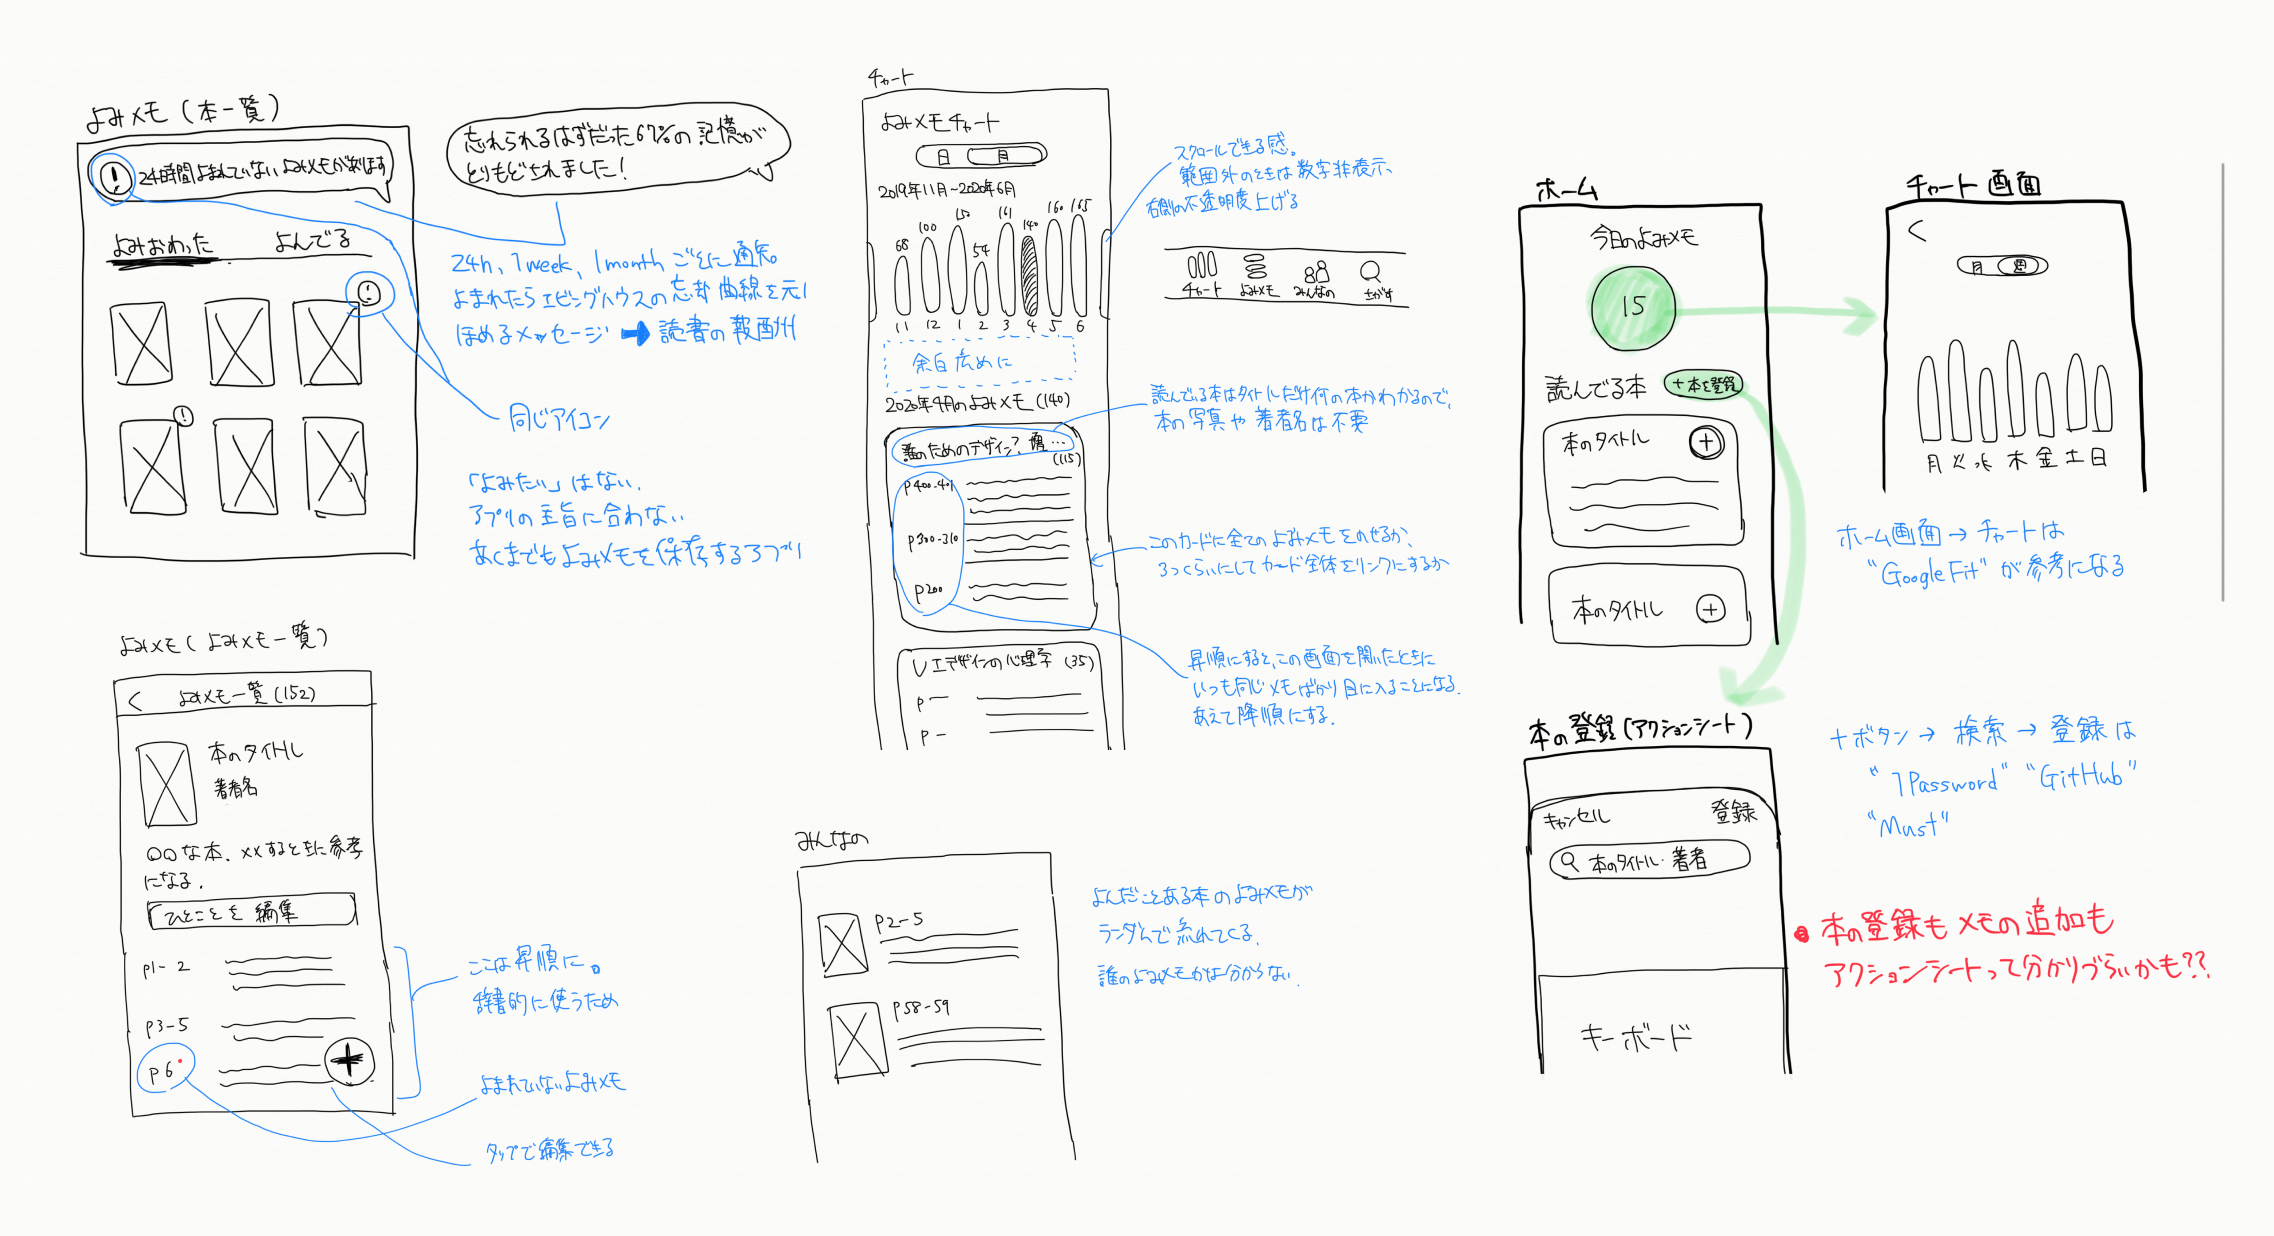 よみメモ(本一覧)
24時間よまれていないよみメモがあります
よみおわった
よんでる
忘れられるはずだった67%の記憶が
とりもどされました!
24h、1week、1monthごとに通知。
よまれたらエビングハウスの忘却曲線を元に
ほめるメッセージ → 読書の報酬
同じアイコン
「よみたい」はない。
アプリの主旨に合わない
あくまでもよみメモを保存するアプリ
よみメモ(よみメモ一覧)
< よみメモ一覧(152)
本のタイトル
著者名
○○な本、××するときに参考
になる。
ひとことを編集
p1-2
p3-5
p6
ここは昇順に。
辞書的に使うため
よまれていないよみメモ
タップで編集できる
チャート
よみメモチャート
日 月
2019年11月~2020年6月
68 100 150 54 161 140 160 165
11 12 1 2 3 4 5 6
余白広めに
2020年4月のよみメモ(140)
誰のためのデザイン? 増…
(115)
p400-401
p300-310
p200
UIデザインの心理学 (35)
p
p
スクロールできる感。
範囲外のときは数字非表示、
右側の不透明度上げる
チャート よみメモ みんなの さがす
読んでいる本はタイトルだけ何の本かわかるので、
本の写真や著者名は不要
このカードに全てのよみメモをのせるか、
3つくらいにしてカード全体をリンクにするか
昇順にすると、この画面を開いたときに
いつも同じメモばかり目に入ることになる。
あえて降順にする。
みんなの
p2-5
p58-59
よんだことある本のよみメモが
ランダムで流れてくる。
誰のよみメモかは分からない。
ホーム
今日のよみメモ
15
読んでる本
+本を登録
本のタイトル +
本のタイトル +
チャート画面
<
月 週
月 火 水 木 金 土 日
ホーム画面 → チャートは
"Google Fit" が参考になる
本の登録(アクションシート)
キャンセル 登録
本のタイトル・著者
キーボード
+ボタン → 検索 → 登録は
"1Password" "GitHub"
"Must"
本の登録もメモの追加も
アクションシートって分かりづらいかも??